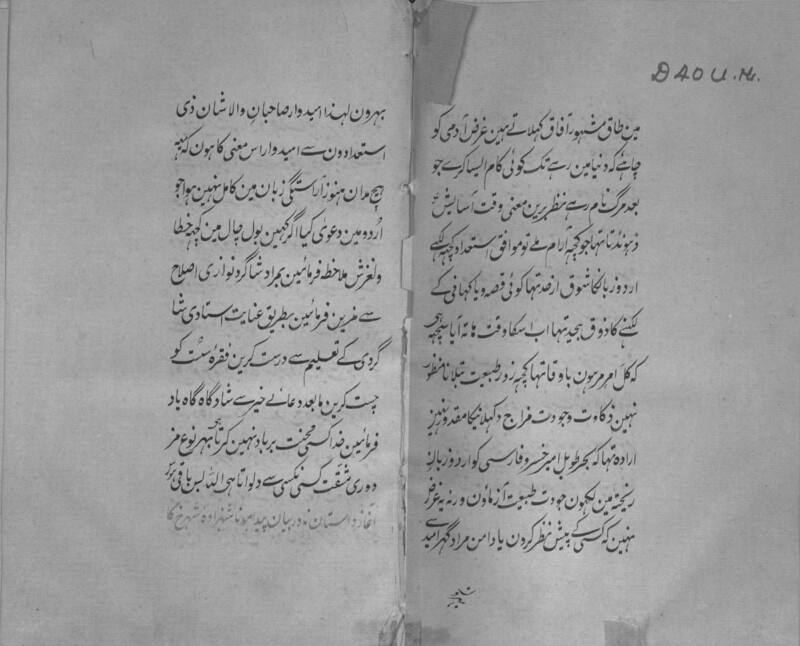 D 40 U. Mr.
مین طاق مشہور آفاق کہلاتے ہین غرض آدمی کو
چاہئے کہ دنیا مین رہے تک کوئی کام ایسا کرے جو
بعد مرگ نام رہے نظر برین معنی وقت آسایش
تہا جو کچہ آرام ملے تو موافق استعداد کچہ لکہے
اردو زبان کا شوق از حد تہا کوئی قصہ و یا کہانی کے
لکہنے کا ذوق بیحد تہا اب اسکا وقت ہاتہ آیا سچ ہے
کہ کل امر مرہون باوقاتہا کچہ زور طبیعت بتلانا منظور
نہین ذکاوت و جودت مزاج دکہلانیکا مقدور نہین
ارادہ تہا کہ بحر طویل امیر خسرو فارسی کو اردو زبان
ریختہ مین لکہون جودت طبیعت آزماؤن ورنہ یہ غرض
نہین کہ کسی کے پیش نظر کرون یا دامن مراد گہر امید سے
بہرون لہذا امیدوار صاحبان والا شان ذی
استعدادون سے امیدوار اس معنی کا ہون کہ یہہ
ہیچ مدان ہنوز آراستگی زبان مین کامل نہین ہوا جو
اُردو مین دعویٰ کیا اگر کہین بول چال مین کچہہ خطا
و لغزش ملاحظہ فرمائین بمراد شاگرد نوازی اصلاح
سے مزین فرمائین بطریق عنایت استادی شا
گردی کے تعلیم سے درست کرین فقرہ سست کو
چست کرین مابعد دعائے خیر سے شاد گاہ گاہ یاد
فرمائین خدا کسی محنت برباد نہین کرتا ہے بہر نوع مز
دوری مشقت کسی نکسی سے دلواتا ہی اللہ بس باقی ہوس
آغاز داستان نادر بیان پیدا ہونا شہزادہ شہرخ کا